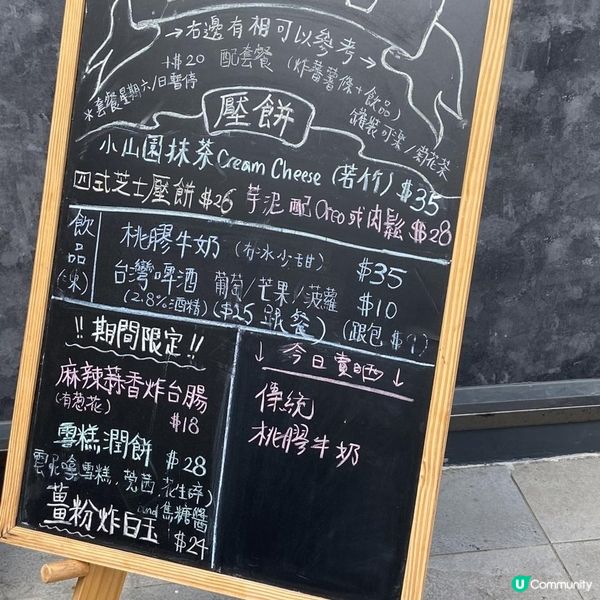 →右邊有相可以參考→
+$20 配套餐 (炸蕃薯條+飲品)
*套餐星期六/日暫停
罐裝可樂/菊花茶
壓餅
小山園抹茶Cream Cheese (若竹) $35
四式芝士壓餅 $26 芋泥配Oreo或肉鬆 $28
飲品(凍)
桃膠牛奶 (冇冰少甜) $35
台灣啤酒 葡萄/芒果/菠蘿 $10
(2.8%酒精) ($25 跟餐) (跟包$9)
!! 期間限定 !!
麻辣蒜香炸台腸
(有葱花) $18
雪糕潤餅 $28
雲呢拿雪糕,芫茜,花生碎)
and焦糖醬
薑粉炸白玉 $24
↓ 今日賣晒 ↓
傳統
桃膠牛奶
U Community